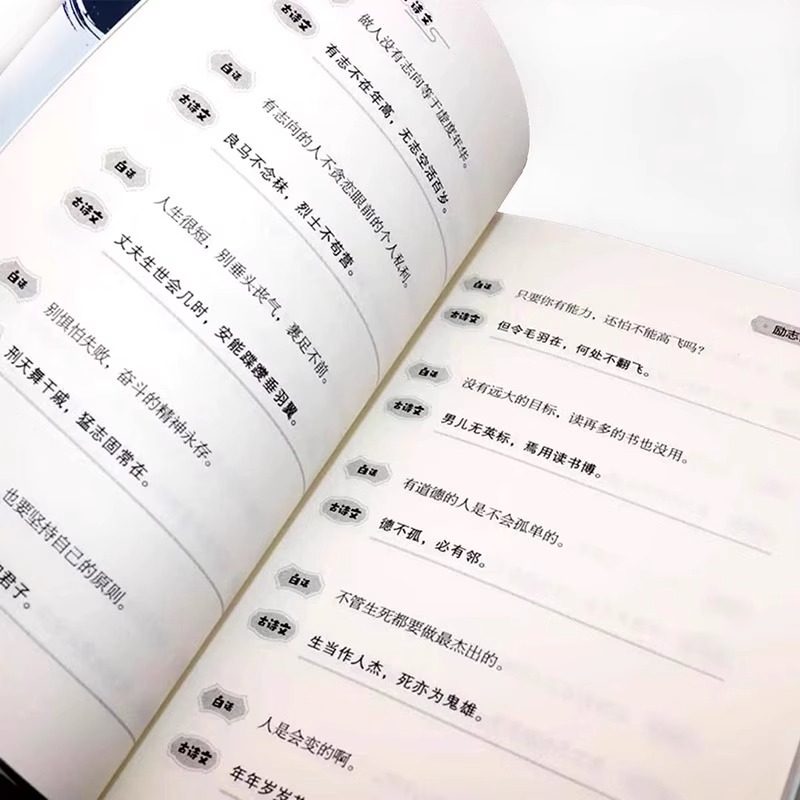 古诗文
白话
做人没有志向等于虚度年华。
古诗文
有志不在年高，无志空活百岁。
白话
有志向的人不贪恋眼前的个人私利。
古诗文
良马不念秣，烈士不苟营。
白话
人生很短，别垂头丧气，裹足不前。
古诗文
丈夫生世会几时，安能蹀躞垂羽翼。
白话
别惧怕失败，奋斗的精神永存。
刑天舞干戚，猛志固常在。
也要坚持自己的原则。
君子。
励志
白话
只要你有能力，还怕不能高飞吗？
古诗文
但令毛羽在，何处不翻飞。
白话
没有远大的目标，读再多的书也没用。
古诗文
男儿无英标，焉用读书博。
白话
有道德的人是不会孤单的。
古诗文
德不孤，必有邻。
白话
不管生死都要做最杰出的。
古诗文
生当作人杰，死亦为鬼雄。
白话
人是会变的啊。
古诗文
年年岁岁